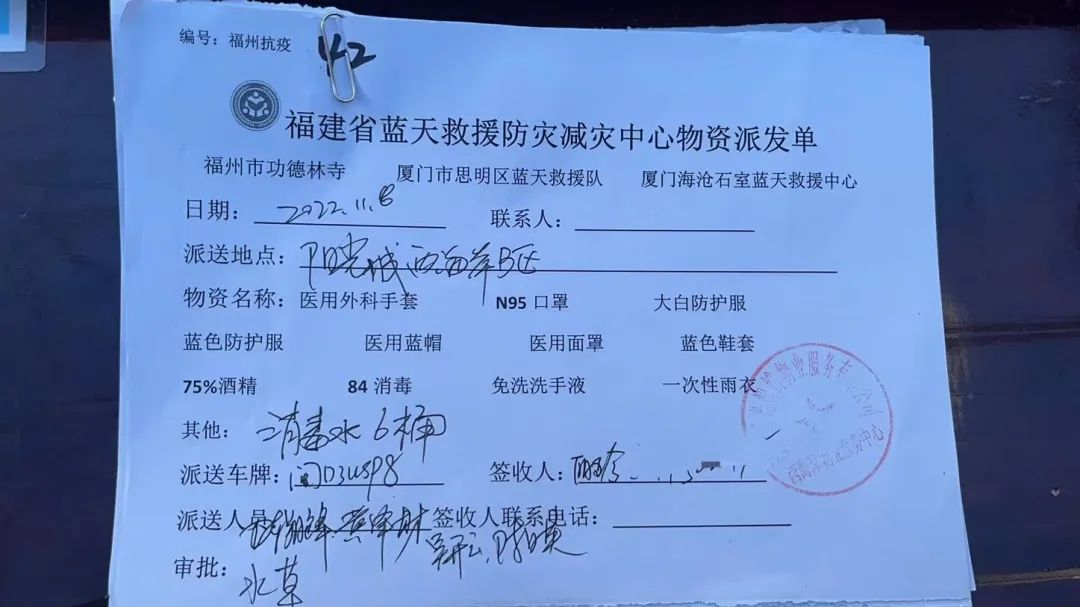 编号：福州抗疫 42
福建省蓝天救援防灾减灾中心物资派发单
福州市功德林寺 厦门市思明区蓝天救援队 厦门海沧石室蓝天救援中心
日期：2022.11.8 联系人：
派送地点：阳光城西海岸B区
物资名称：医用外科手套 N95 口罩 大白防护服
蓝色防护服 医用蓝帽 医用面罩 蓝色鞋套
75%酒精 84 消毒 免洗洗手液 一次性雨衣
其他：消毒水6桶
派送车牌：闽D3U5P8 签收人：
派送人员 签收人联系电话：
审批：水草
物业服务有 公司